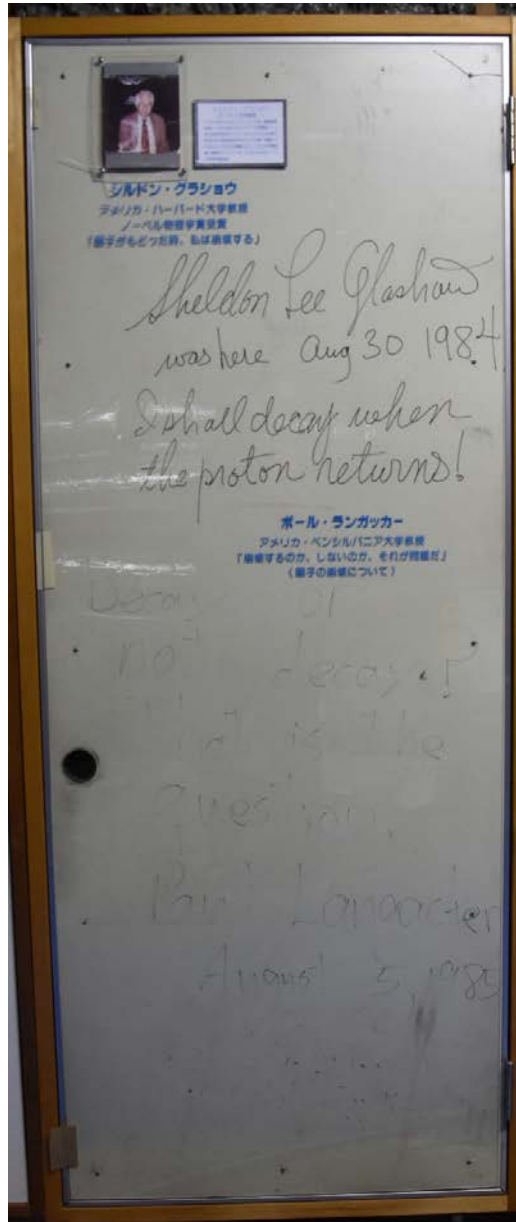 シルドン・グラショウ
アメリカ・ハーバード大学教授
ノーベル物理学賞受賞
「陽子がもどった時、私は崩壊する」
Sheldon Lee Glashow
was here Aug 30 1984.
I shall decay when
the proton returns!
ポール・ランガッカー
アメリカ・ペンシルバニア大学教授
「崩壊するのか、しないのか、それが問題だ」
(陽子の崩壊について)
Decay or
not decay?
that is the
question.
Paul Langacker
August 5, 1985